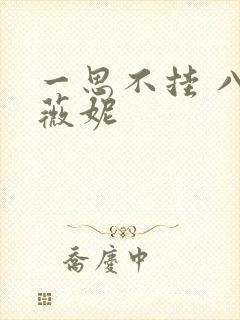 一思不挂 八
薇妮
乔庆中